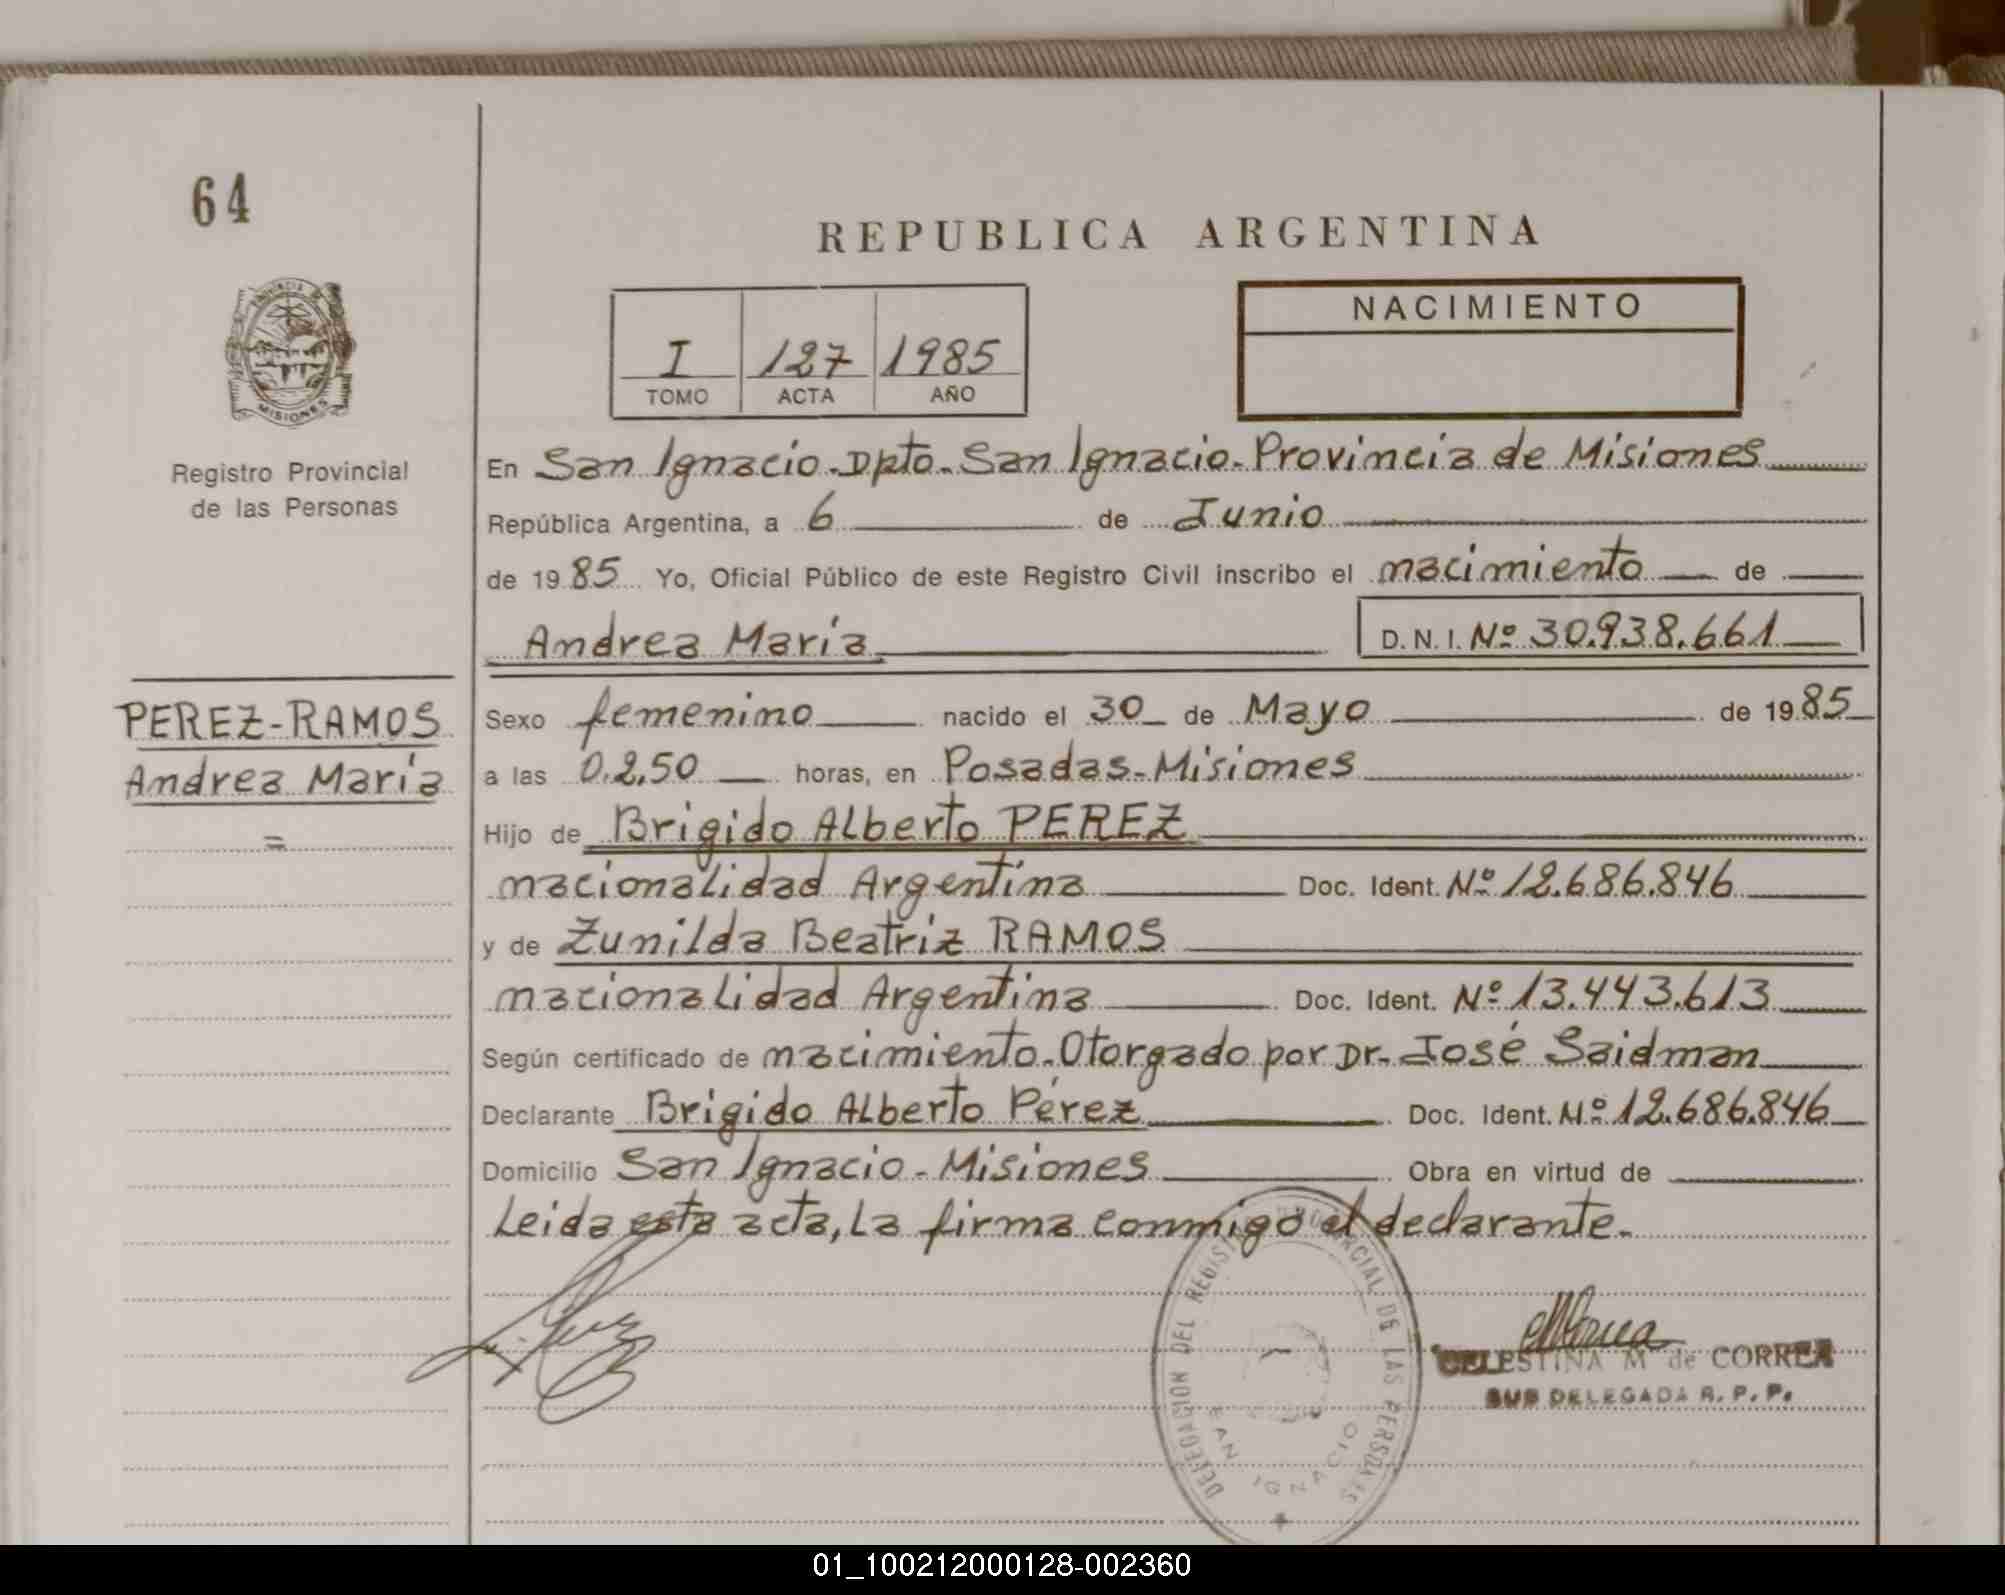 64
REPUBLICA ARGENTINA
PROVINCIA DE
MISIONES
Registro Provincial
de las Personas
I 127 1985
TOMO ACTA AÑO
NACIMIENTO
En San Ignacio - Dpto - San Ignacio - Provincia de Misiones
República Argentina, a 6 de Junio
de 1985 Yo, Oficial Público de este Registro Civil inscribo el nacimiento de
Andrea María D.N.I. Nº 30.938.661
PEREZ-RAMOS
Andrea María
=
Sexo femenino nacido el 30 de Mayo de 1985
a las 0.2,50 horas, en Posadas - Misiones
Hijo de Brigido Alberto PEREZ
nacionalidad Argentina Doc. Ident. Nº 12.686.846
y de Zunilda Beatriz RAMOS
nacionalidad Argentina Doc. Ident. Nº 13.443.613
Según certificado de nacimiento - Otorgado por Dr. José Saidman
Declarante Brigido Alberto Pérez Doc. Ident. Nº 12.686.846
Domicilio San Ignacio - Misiones Obra en virtud de
Leida esta acta, la firma conmigo el declarante.
DELEGACION DEL REGISTRO PROVINCIAL DE LAS PERSONAS
SAN IGNACIO
CELESTINA M de CORREA
SUB DELEGADA R. P. P.
01_100212000128-002360